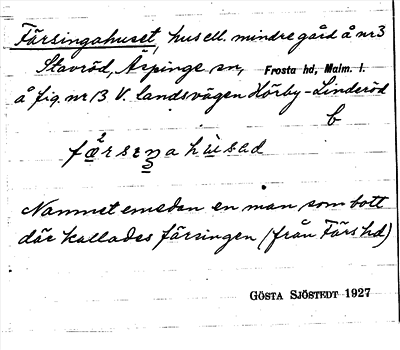 Färsingahuset, hus ell. mindre gård å nr 3
Stavröd, Äspinge sn, Frosta hd, Malm. l.
å fig. nr 13 V. landsvägen Hörby-Linderöd
b
Namnet emedan en man som bott
där kallades färsingen (från Färs hd)
GÖSTA SJÖSTEDT 1927